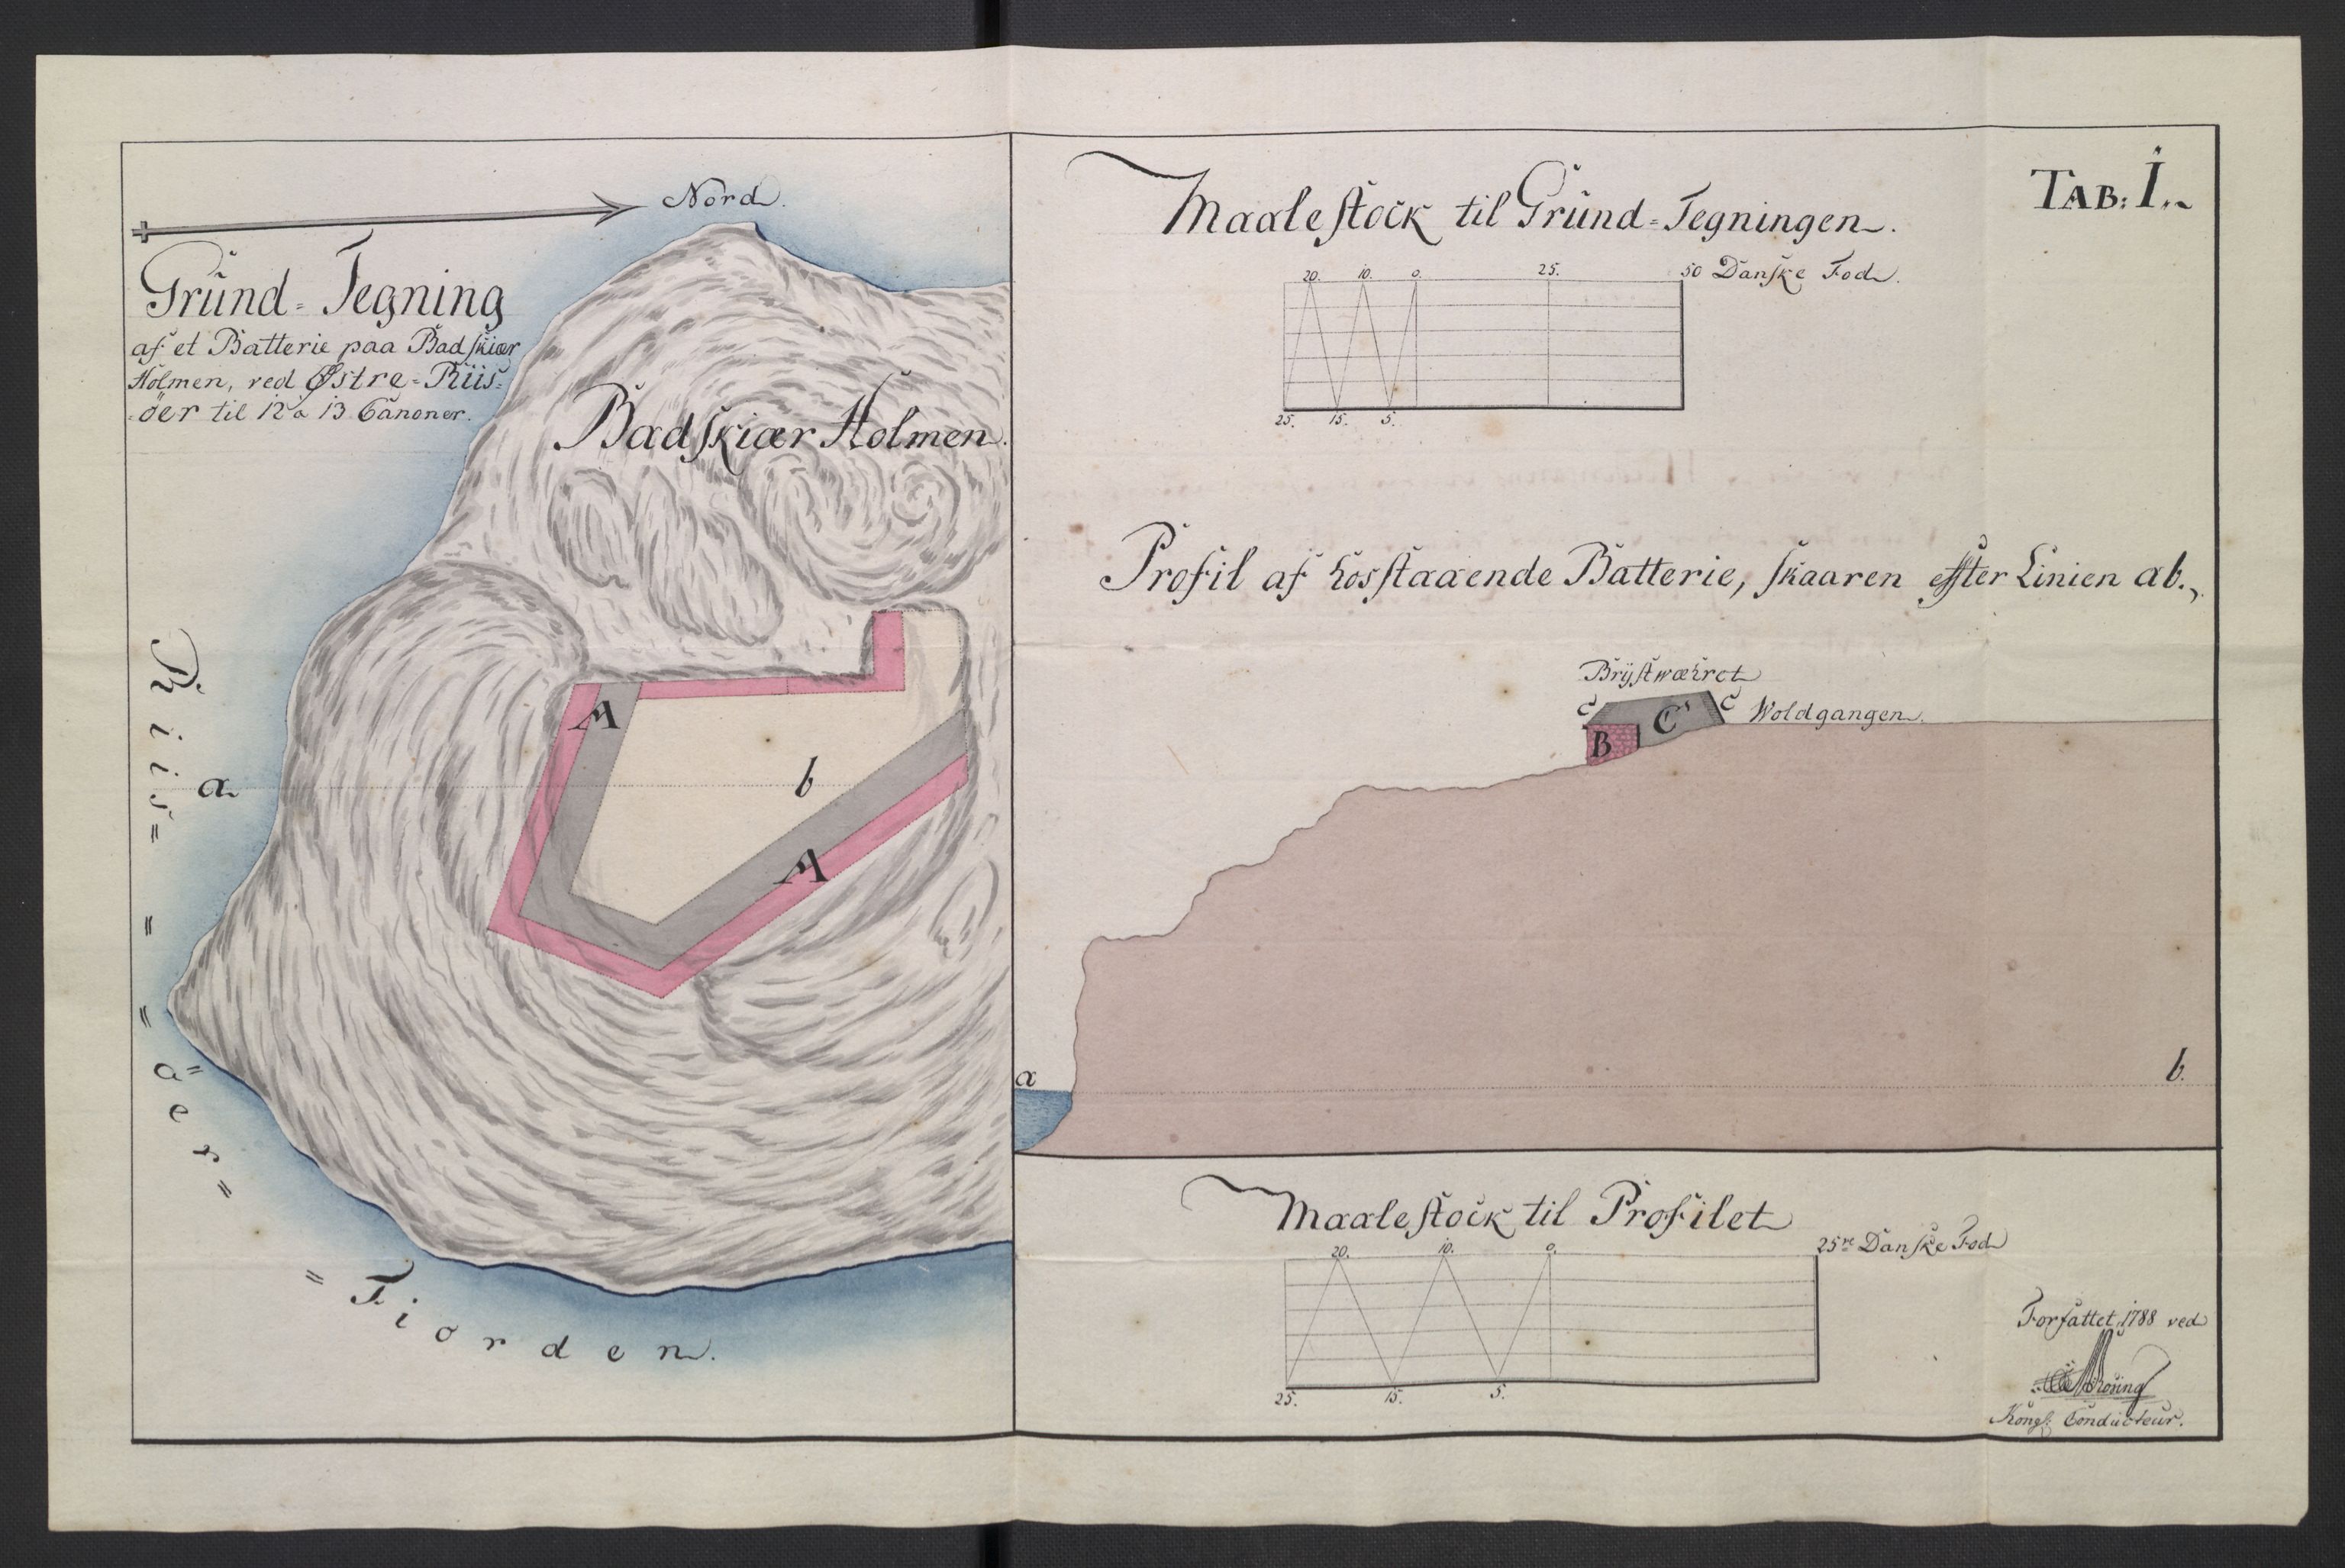 Nord.
Gründ=Tegning
af et Batterie paa Badskiær
Holmen, ved Østre=Riis=
=öer til 12 a 13 Canoner.
Badskiær Holmen.
A
b
a
A
Riis=
=
=
ö=
er=
=Fiorden.
TAB: I.
Maalestock til Gründ=Tegningen.
20. 10. 0. 25. 50 Danske Fod.
25. 15. 5.
Profil af hosstaaende Batterie, skaaren effter Linien ab.
Brÿstwæhret
C C C Woldgangen.
B
a
b.
Maalestock til Profilet
20. 10. 0. 25re Danske Fod
25. 15. 5.
Forfattet 1788 ved
Kongl: Conducteur.